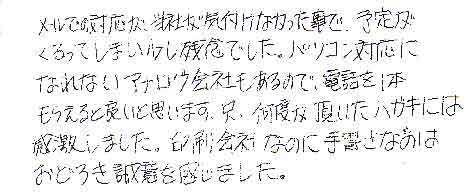 メールでの対応が、当社が気付けなかった事で、予定が
くるってしまい少し残念でした。パソコン対応に
なれないアナログ会社もあるので、電話を1本
もらえると良いと思います。又、何度か頂いたハガキには
感激しました。印刷会社なのに手書きなのは
おどろき誠意を感じました。